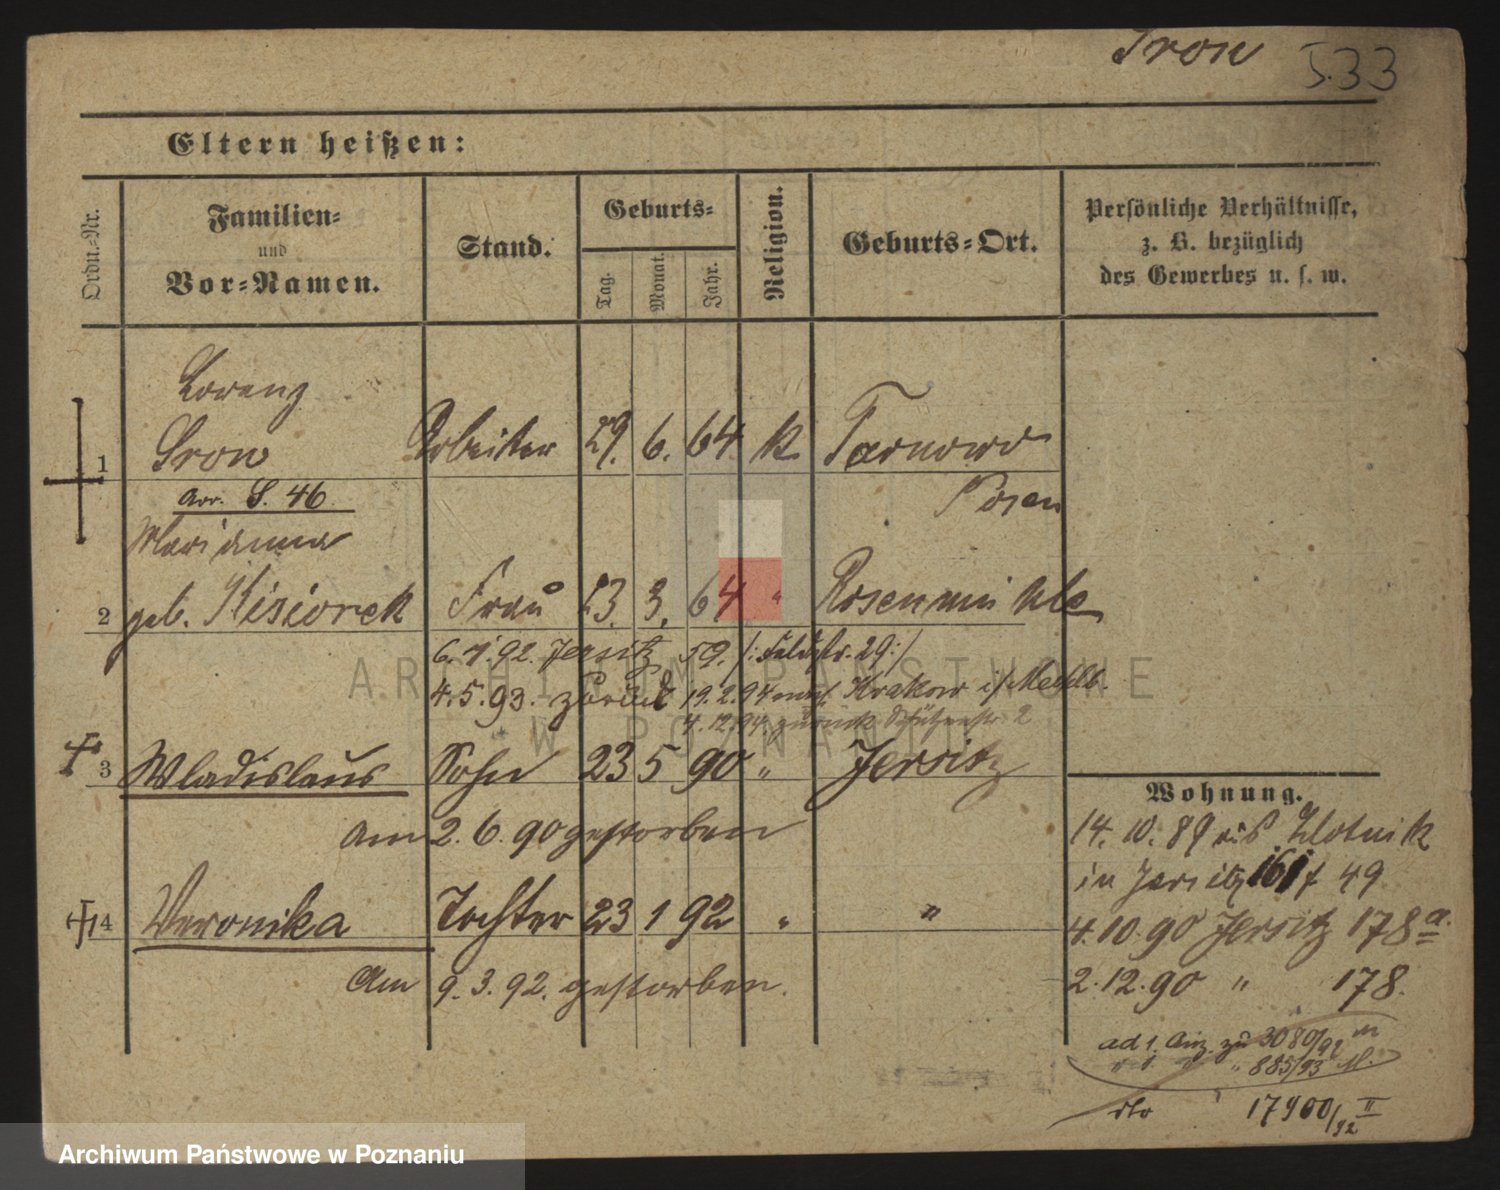 Srow 533
Eltern heißen:
Ordn.-Nr.
Familien-
und
Vor-Namen.
Stand.
Geburts-
Tag.
Monat.
Jahr.
Religion.
Geburts-Ort.
Persönliche Verhältnisse,
z. B. bezüglich
des Gewerbes u. s. w.
Lorenz
1 Srow Arbeiter 29. 6. 64. k Tarnowo
Posen
Arr. S. 46.
Marianna
2 geb. Kisiorek Frau 23. 3. 64 " Rosenmühle
6. 1. 92. Jersitz 59. /: Feldstr. 29 :/
4. 5. 93. zurück 19. 2. 94 nach Krakow i/ Mecklb.
4. 12. 94 zurück 2
3 Wladislaus Sohn 23 5 90 " Jersitz
am 2. 6. 90 gestorben
4 Veronika Tochter 23 1 92 " "
Am 9. 3. 92. gestorben.
Wohnung.
14. 10. 89 aus Zlotnik
in Jersitz 161 f 49
4. 10. 90 Jersitz 178 a.
2. 12. 90 " 178.
ad 1. zu 3080/92
" 885/93
dto 17400/92 II
ARCHIWUM PAŃSTWOWE
W POZNANIU
Archiwum Państwowe w Poznaniu